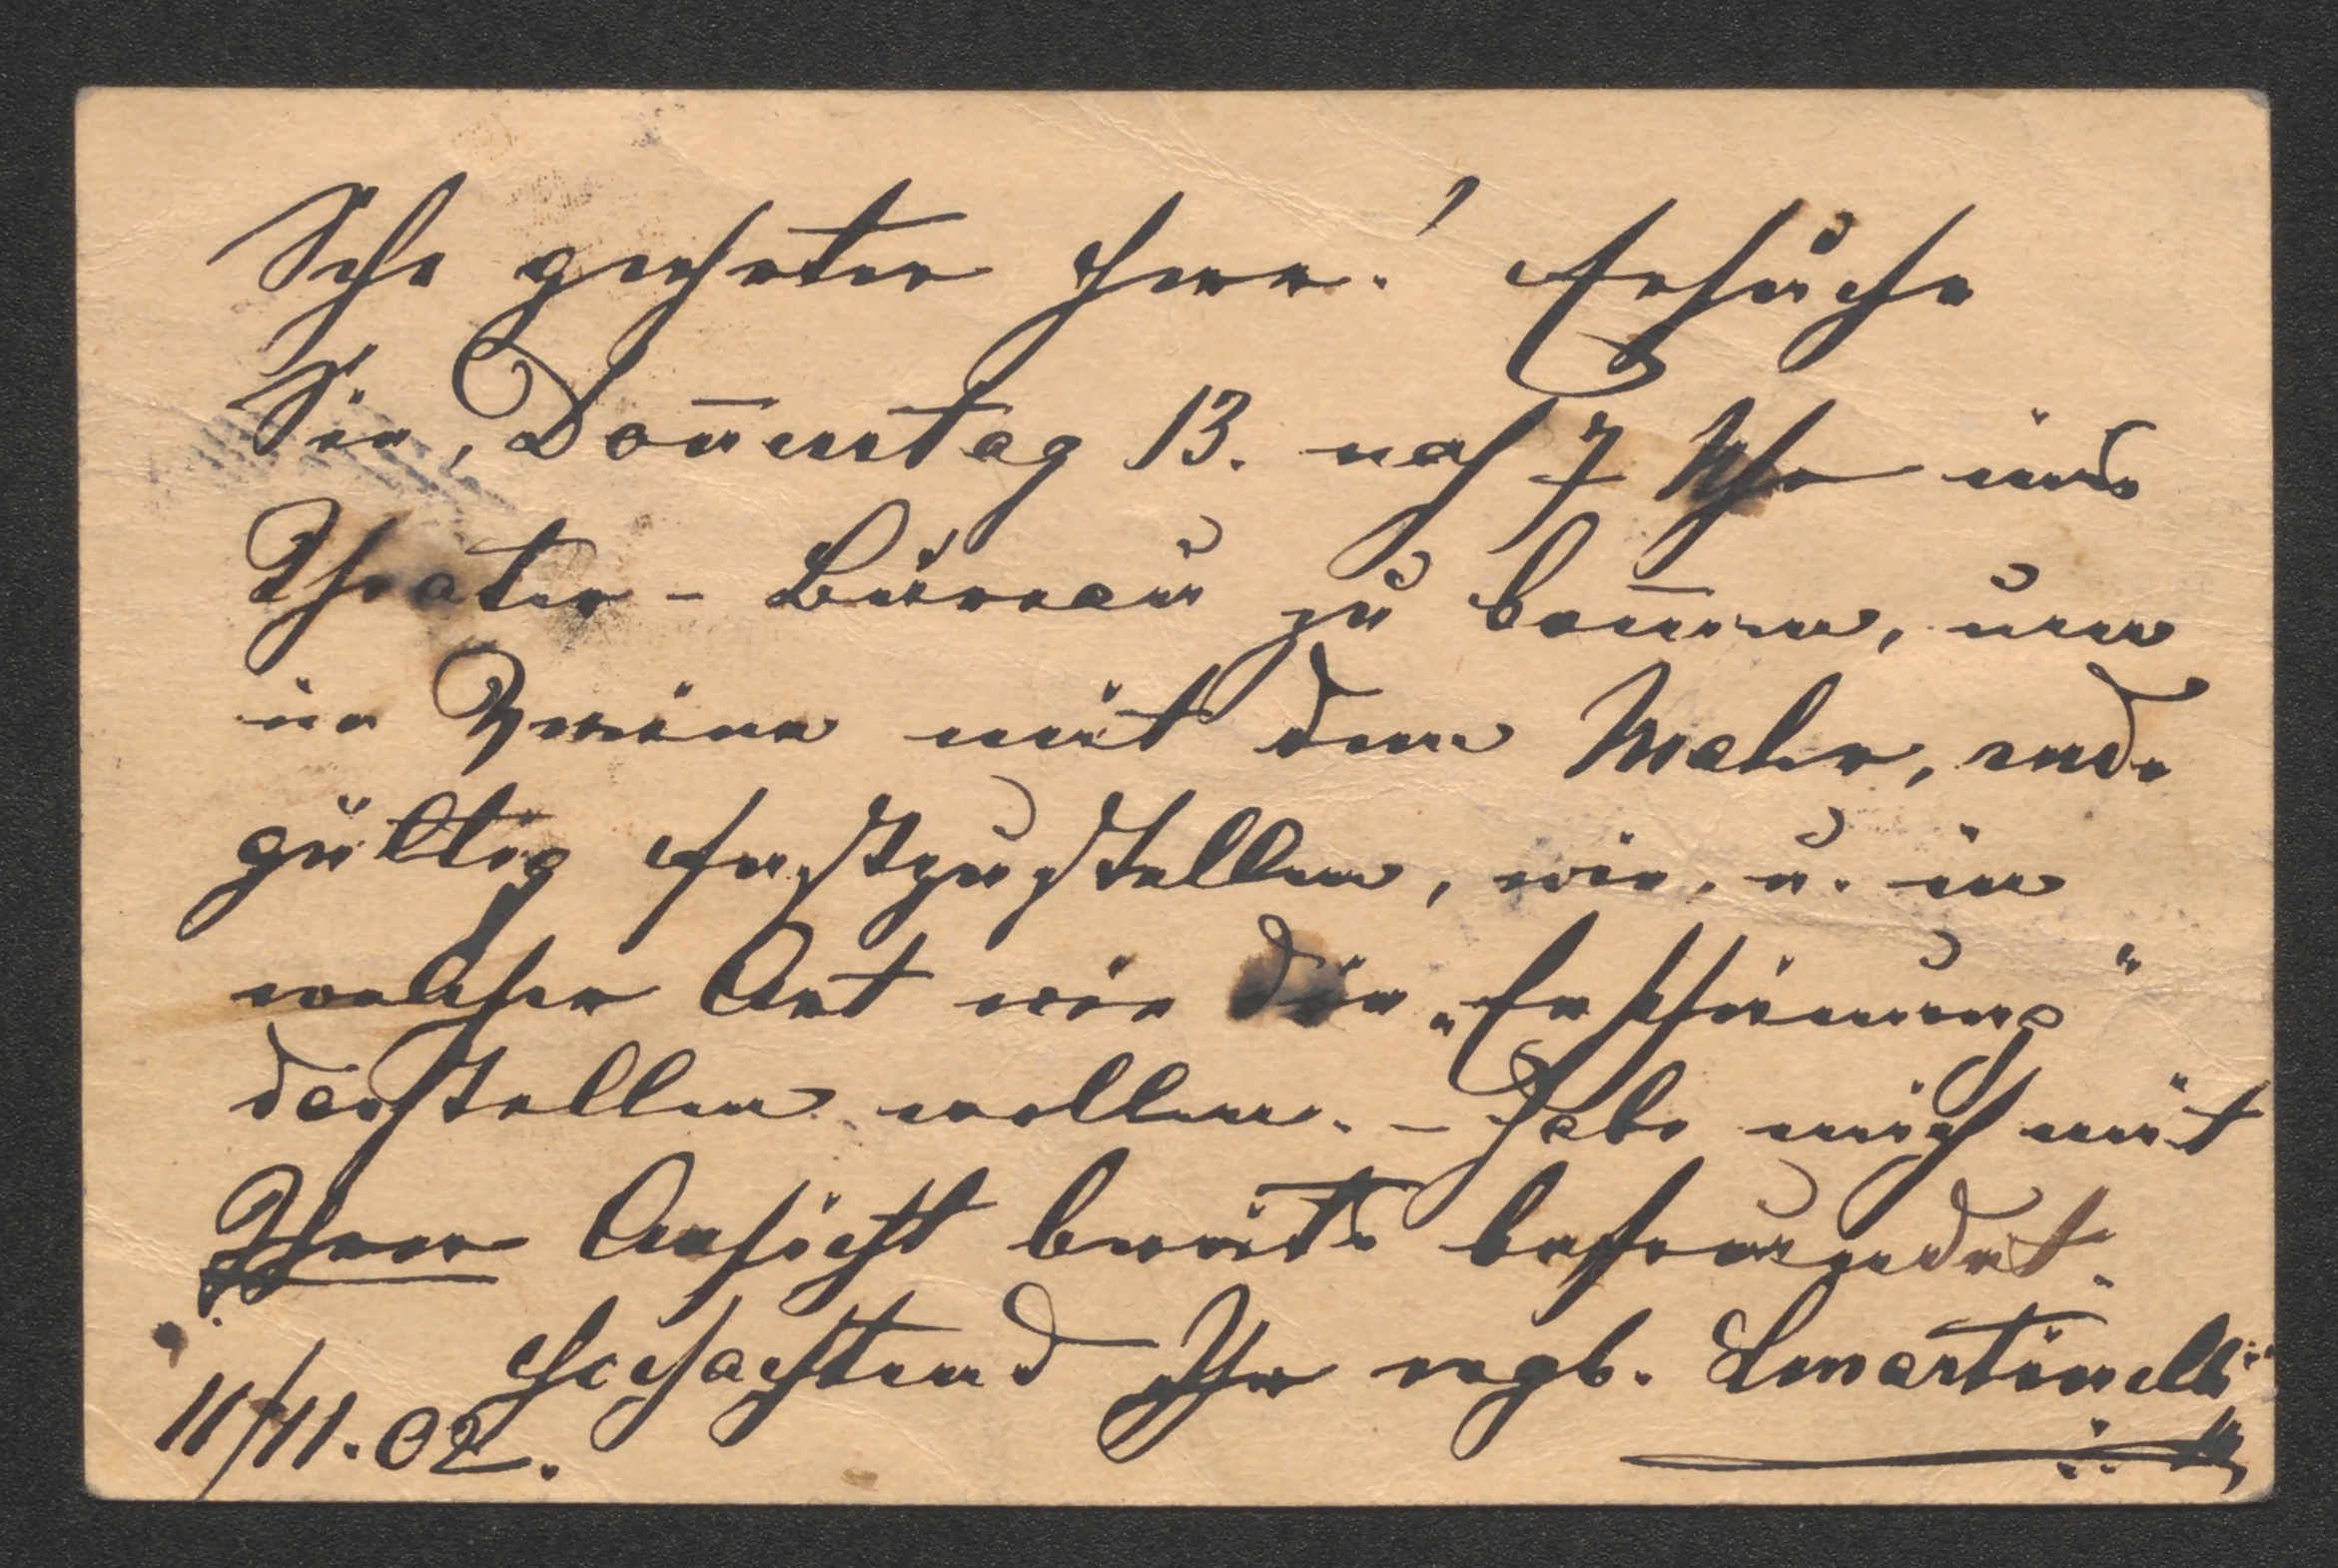 Sehr geehrter Herr! Ersuche
Sie, Don̄erstag 13. nach 7 Uhr ins
Theater-Büreau zu kom̄en, um
im Vereine mit dem Maler, end-
gültig festzustellen, wie u. in
welcher Art wir die „Erscheinung"
darstellen wollen. – Habe mich mit
Ihrer Ansicht bereits befreundet.
Hochachtend Ihr ergb. LMartinelli
11/11.02.